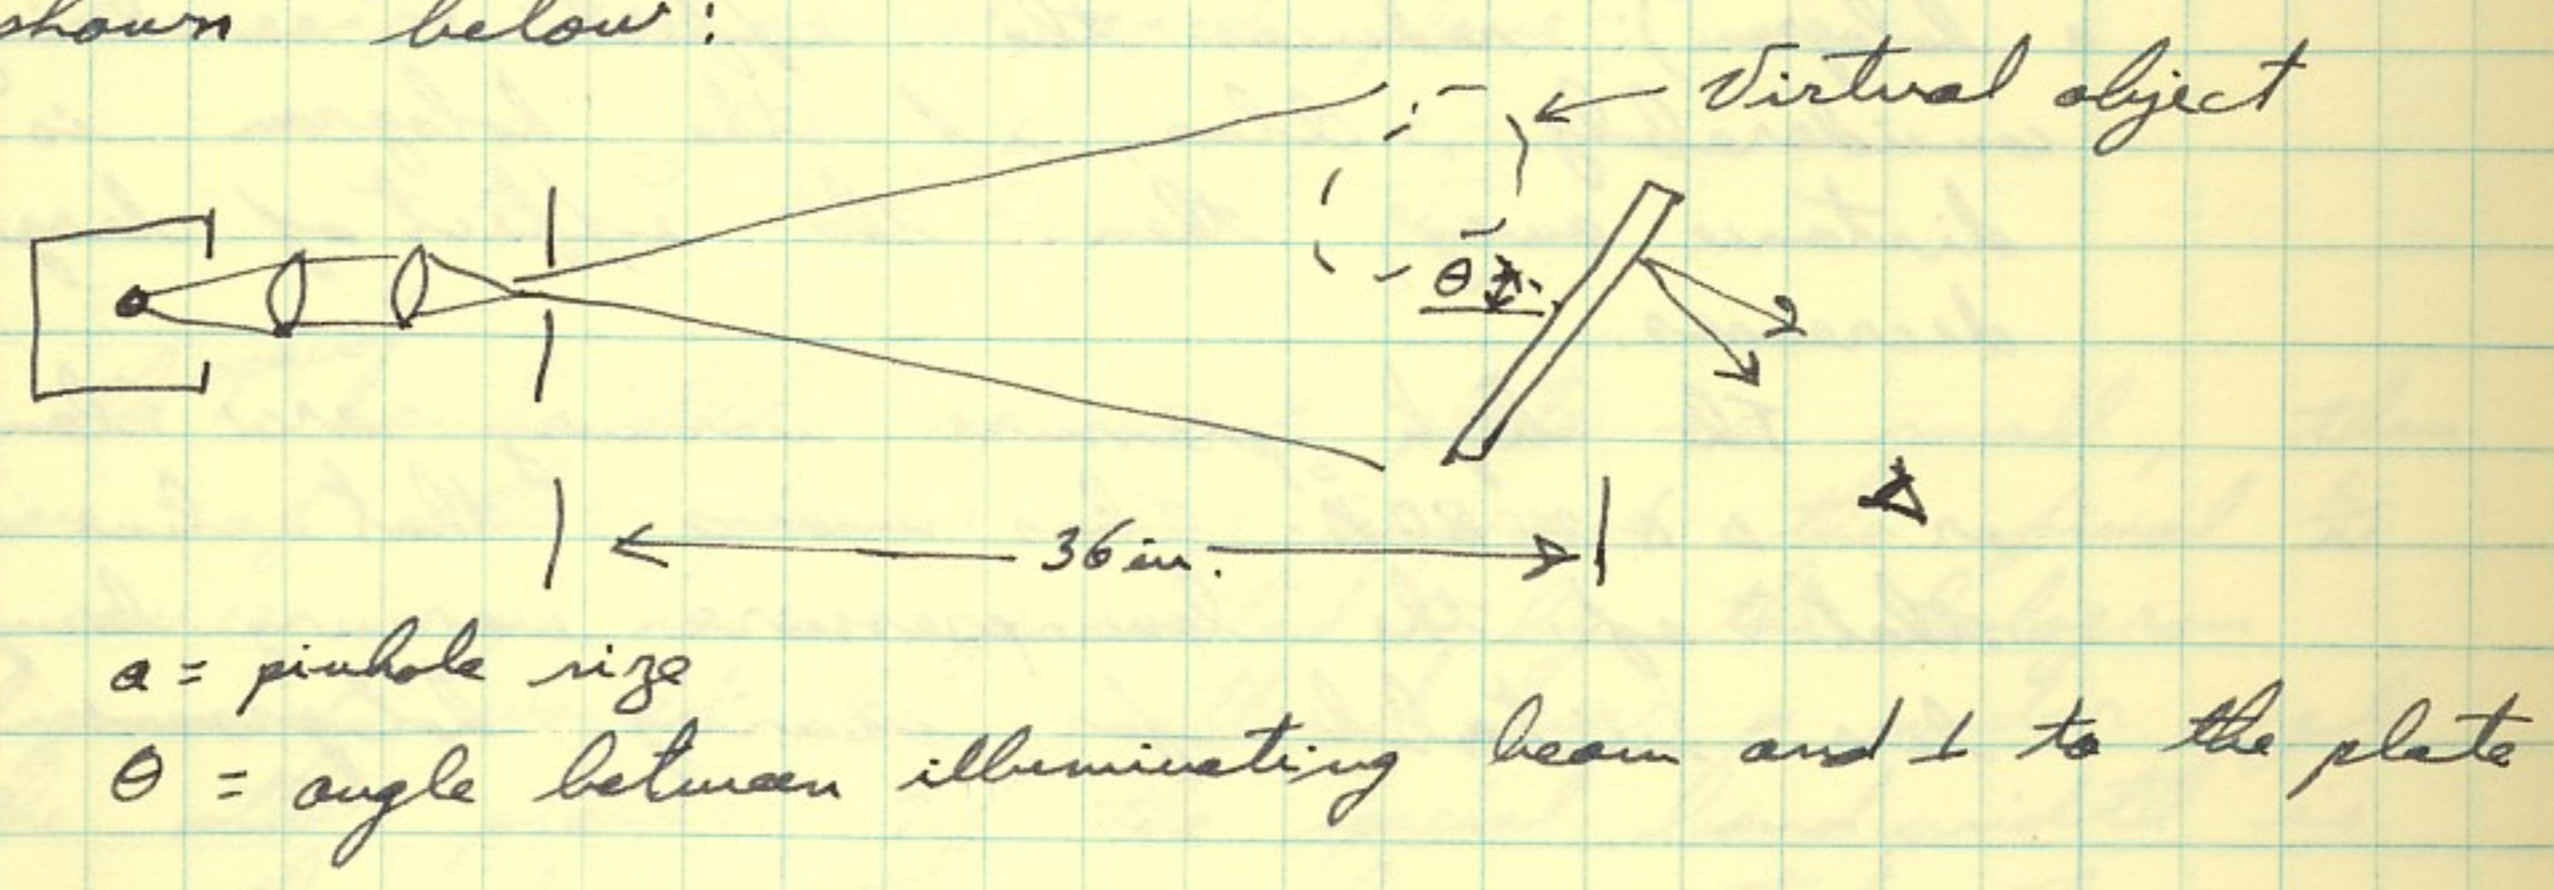 shown below:
Virtual object
θ
36 in.
a = pinhole size
θ = angle between illuminating beam and ⊥ to the plate